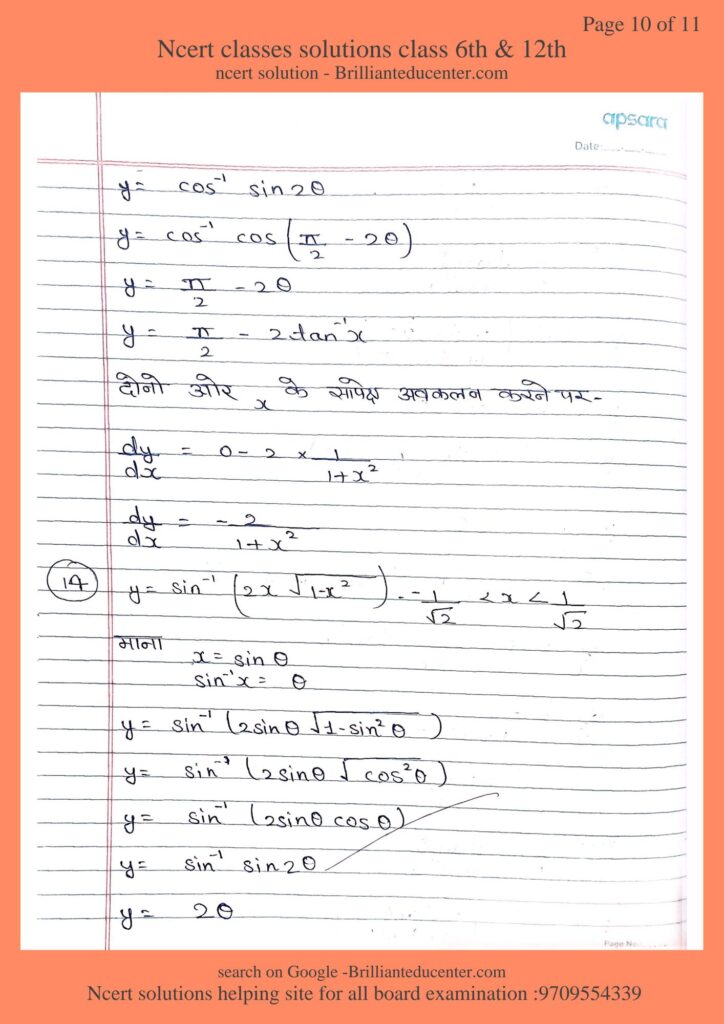 Page 10 of 11
Ncert classes solutions class 6th & 12th
ncert solution - Brillianteducenter.com
apsara
Date:
y = cos⁻¹ sin2θ
y = cos⁻¹ cos(π/2 - 2θ)
y = π/2 - 2θ
y = π/2 - 2tan⁻¹x
दोनो ओर x के सापेक्ष अवकलन करने पर-
dy/dx = 0 - 2 × 1/1+x²
dy/dx = -2/1+x²
14 y = sin⁻¹(2x√1-x²) . -1/√2 < x < 1/√2
माना x = sinθ
sin⁻¹x = θ
y = sin⁻¹(2sinθ√1-sin²θ)
y = sin⁻¹(2sinθ√cos²θ)
y = sin⁻¹(2sinθ cosθ)
y = sin⁻¹ sin2θ
y = 2θ
Page No.
search on Google -Brillianteducenter.com
Ncert solutions helping site for all board examination :9709554339